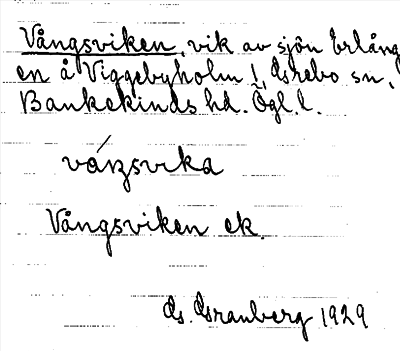 Vångsviken, vik av sjön Erlång
en å Viggebyholm l, Grebo sn,
Bankekinds hd. Ögl. l.
Vångsviken ek.
G. Granberg 1929